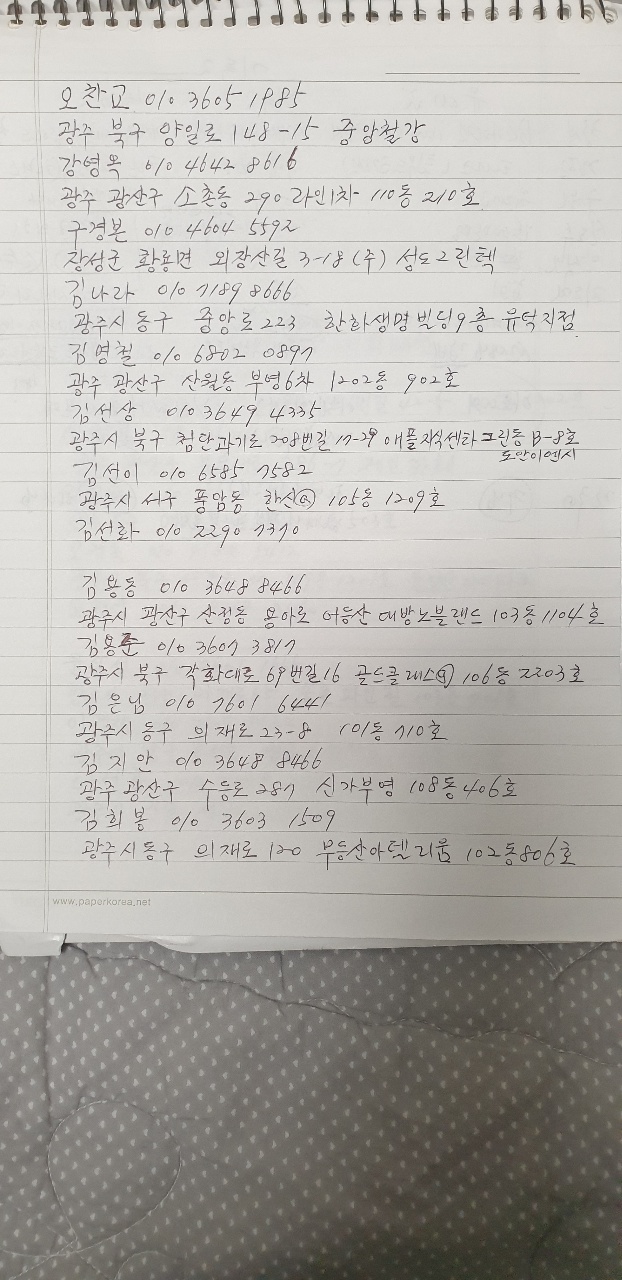 오찬교 010 3605 1985
광주 북구 양일로 148-15 중앙철강
강영옥 010 4642 8616
광주 광산구 소촌동 290 라인1차 110동 210호
구경본 010 4604 5592
장성군 황룡면 외장산길 3-18 (주) 성도그린텍
김나라 010 7189 8666
광주시 동구 중앙로 223 한화생명빌딩 9층 유덕지점
김영철 010 6802 0897
광주 광산구 산월동 부영6차 1202동 902호
김선상 010 3649 4335
광주시 북구 첨단과기로 208번길 17-29 애플지식센타 그린동 B-8호
도안이엔시
김선이 010 6585 7582
광주시 서구 풍암동 한신ⓐ 105동 1209호
김선화 010 2290 7370
김용동 010 3648 8466
광주시 광산구 산정동 용아로 어등산 대방노블랜드 103동 1104호
김용준 010 3607 3817
광주시 북구 각화대로 69번길 16 골드클래스ⓐ 106동 2203호
김은님 010 7601 6441
광주시 동구 의재로 23-8 101동 710호
김지안 010 3648 8466
광주 광산구 수등로 287 신가부영 108동 406호
김희봉 010 3603 1509
광주시 동구 의재로 120 무등산아델리움 102동 806호
www.paperkorea.net